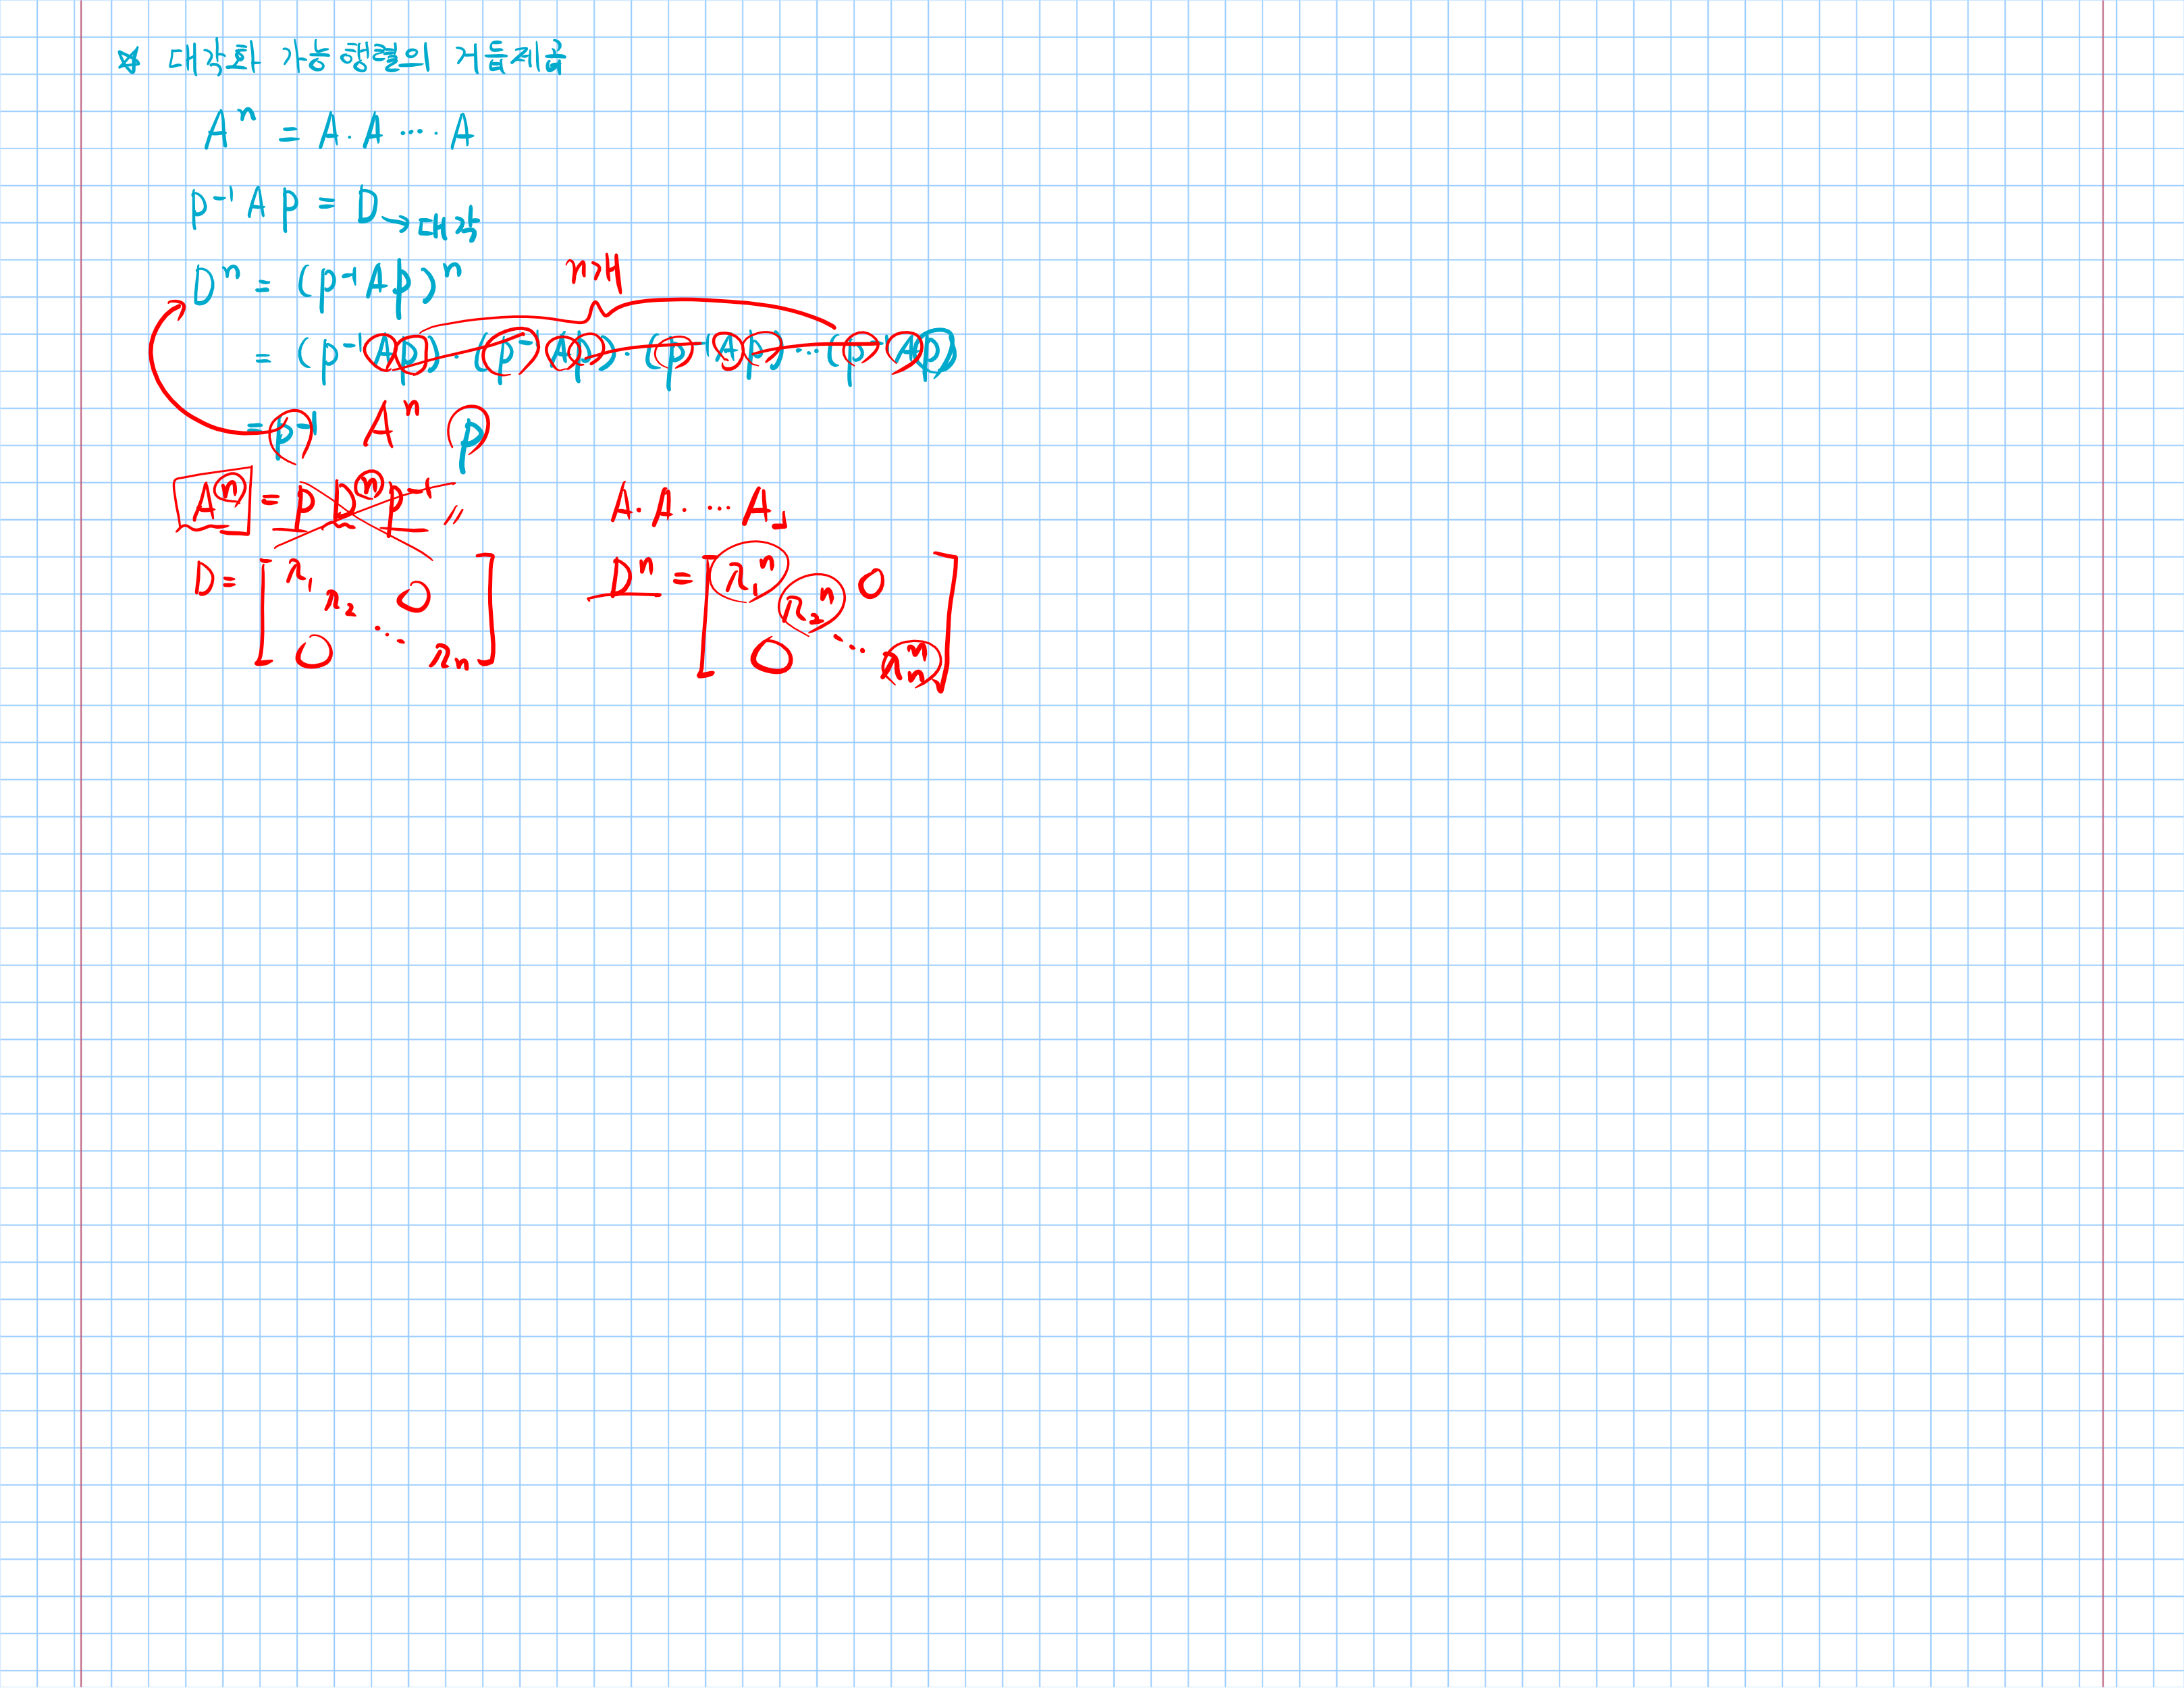 ☆ 대각화 가능행렬의 거듭제곱
Aⁿ = A · A ··· · A
p⁻¹ A p = D → 대각
Dⁿ = (p⁻¹Ap)ⁿ
n개
= (p⁻¹Ap) · (p⁻¹Ap) · (p⁻¹Ap) ··· (p⁻¹Ap)
= p⁻¹ Aⁿ p
Aⁿ = p Dⁿ p⁻¹ 〃 A · A · ··· A
D = [ λ₁ λ₂ 0 ⋱ 0 λₙ ] Dⁿ = [ λ₁ⁿ λ₂ⁿ 0 ⋱ 0 λₙⁿ ]